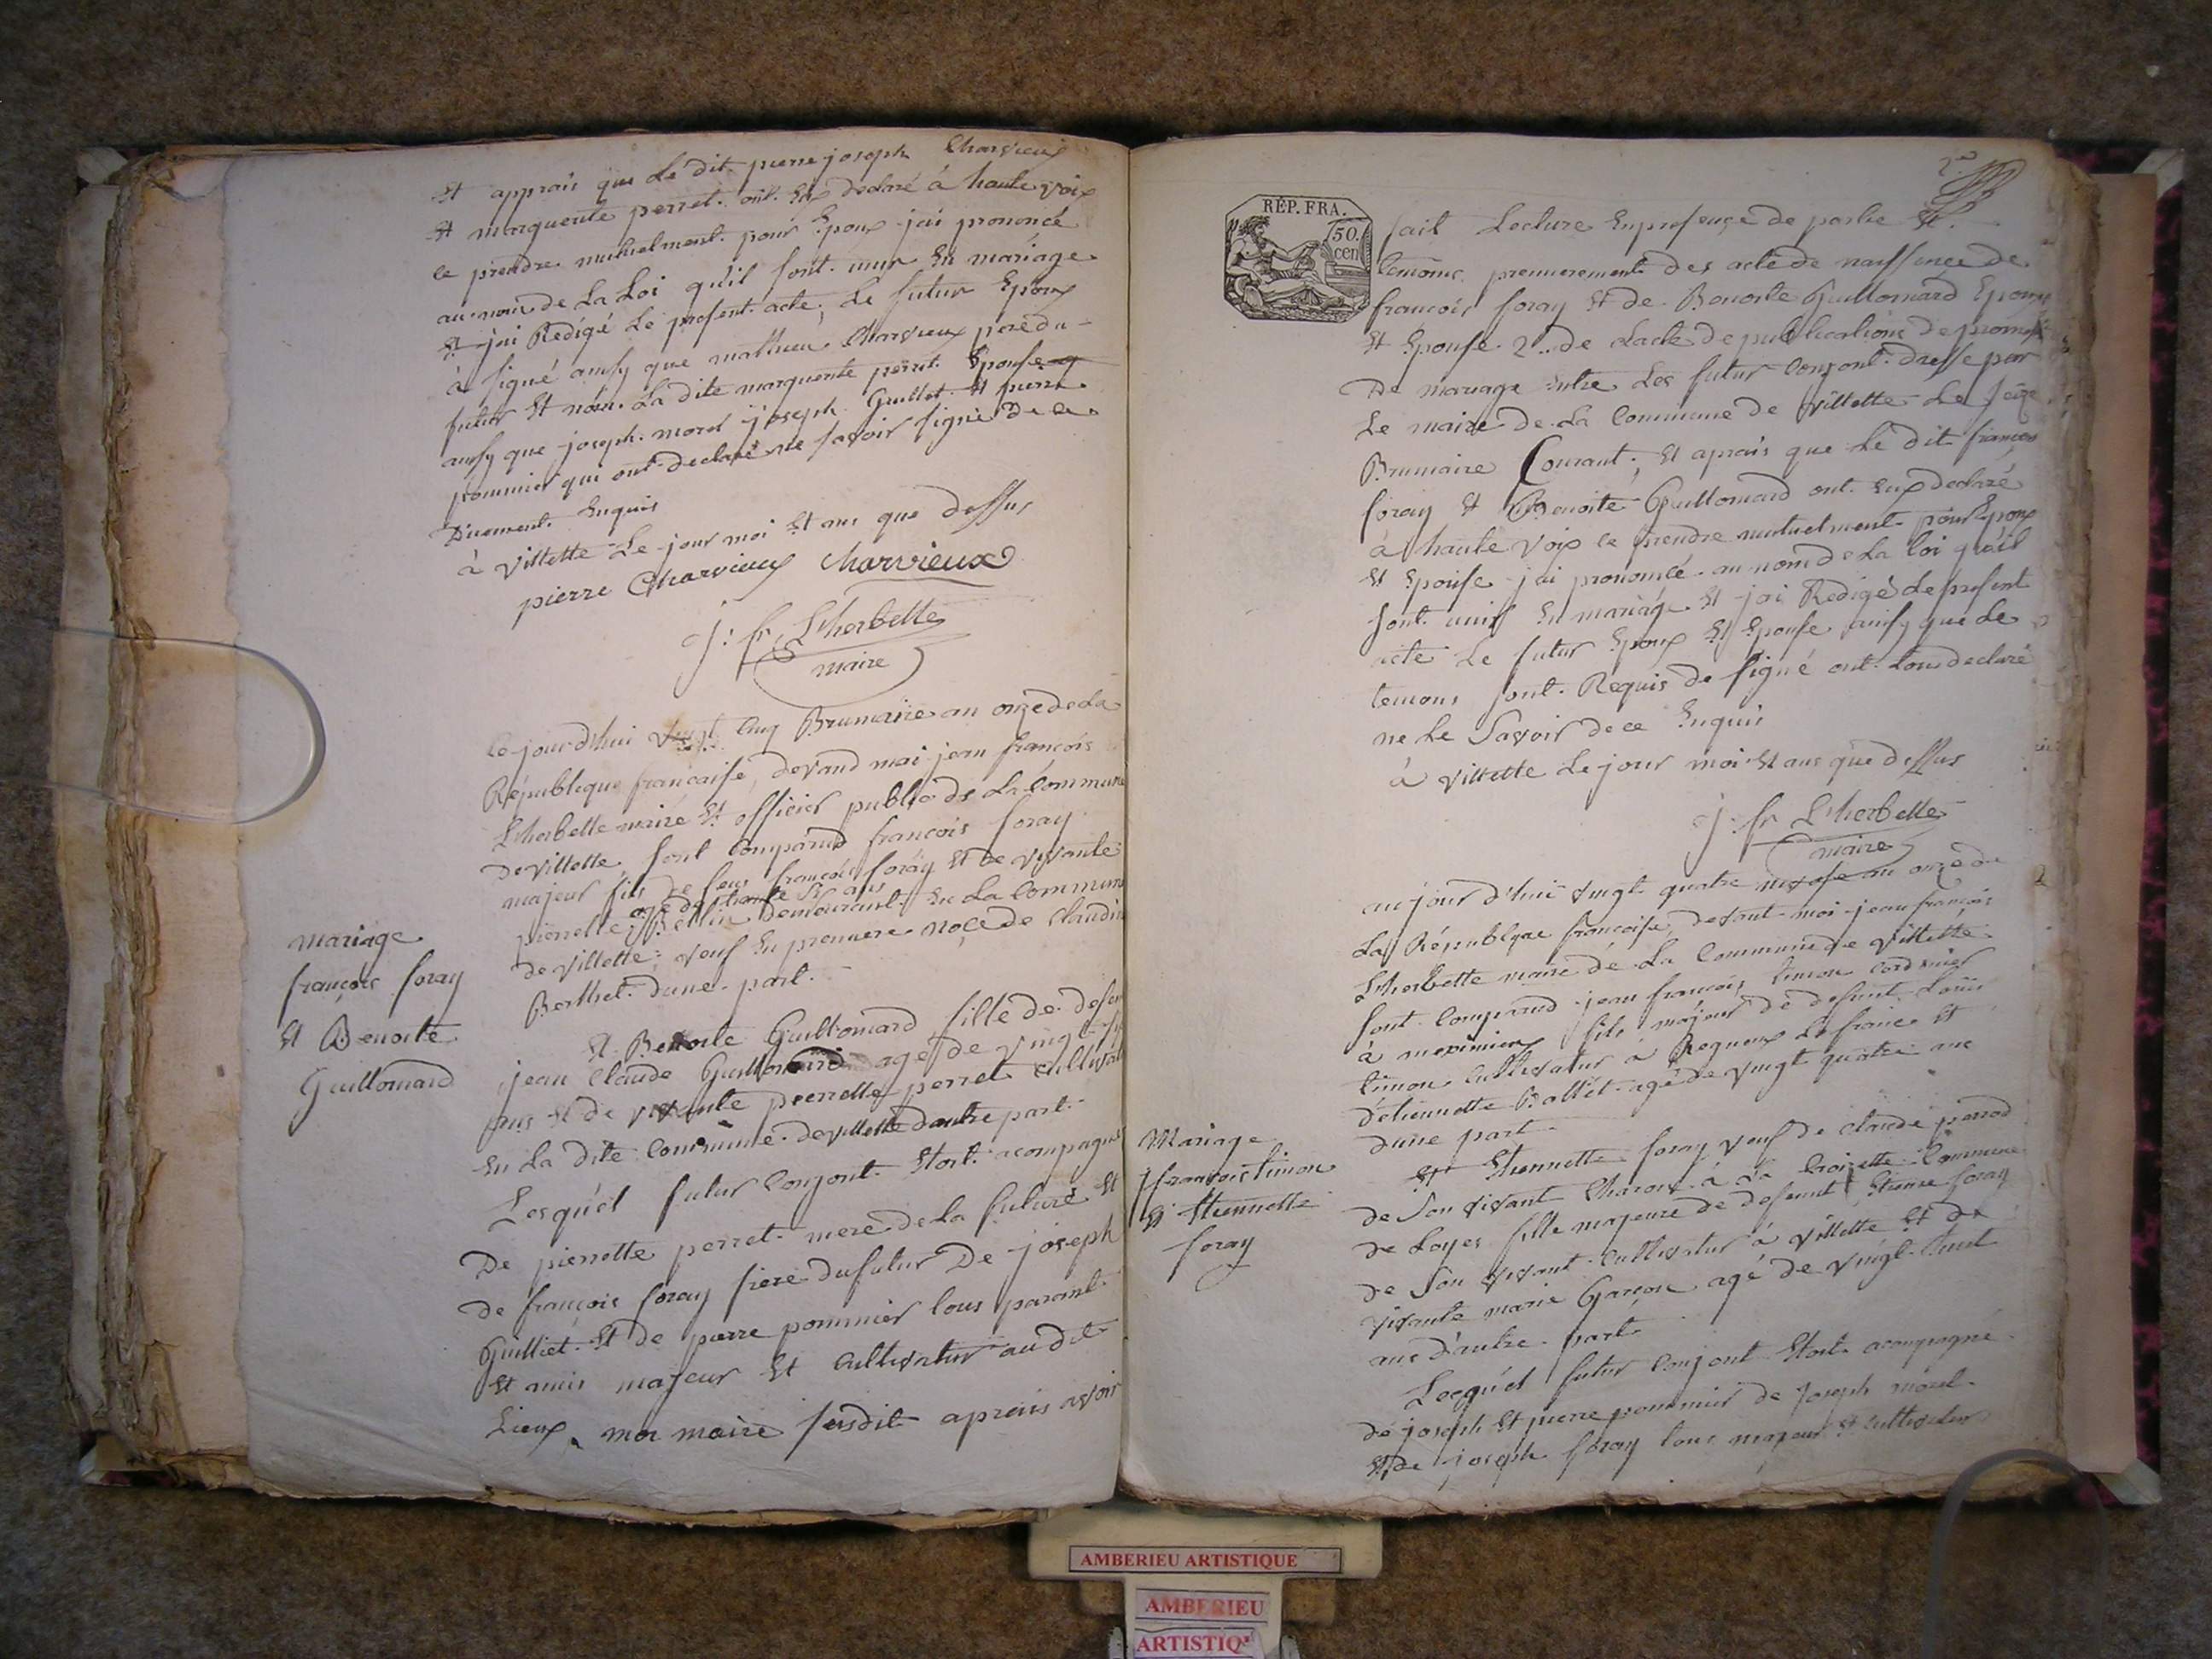 Et apprais que Le dit pierre joseph Charvieux
Et marguerite perret ont Eux declaré à haute voix
ce prendre mutuelment pour Epoux j'ai prononcé
au nom de La Loi qu'il sont unis En mariage
Et j'ai Redigé Le present acte, Le futur Epoux
à signé ainsy que mathieu Charvieux pere du
futur Et non La dite marguerite perret Epouse
ainsy que joseph morel joseph Guillet Et pierre
pommier qui ont declaré ne savoir signé de ce
Dûement Enquis
à villette Le jour moi Et ans que dessus
pierre Charvieux Charvieux
J: fr. Lherbette
maire
Ce jourd'hui vingt Cinq Brumaire an onze de La
République française, devand moi jean françois
Lherbette maire Et officier public de La Commune
de villette, sont Comparud françois foray
majeur fils de feus françois foray Et de vivante
agé de trente six ans
pierrette Bellin demeurant En La Commune
de villette, veuf En premiere noce de Claudine
Berthet d'une part
mariage
françois foray
Et Benoite
Guillomard
Et Benoite Guillomard fille de defeu
jean Claude Guillomard agé de vingt
ans Et de vivante pierrette perret Cultivat
En La dite Commune de villette d'autre part
Lesquél futur Conjont Etoit acompagné
De pierrette perret mere de La future Et
de françois foray frere du futur De joseph
Guilliet Et de pierre pommier tous parant
Et amis majeur Et Cultivatur au dit
Lieux, moi maire susdit aprais avoir
2e
RÉP. FRA.
50.
cen
fait Lecture En presençe de partie Et
temoins premierement des acte de naissence de
françois foray Et de Benoite Guillomard Epoux
Et Epouse 2.. de Lacte de publications de promesse
De mariage Entre Les futur Conjont dresse par
Le maire de La Commune de villette Le seize
Brumaire Courant; Et aprais que Le dit françois
foray Et Benoite Guillomard ont Eux declaré
à haute voix ce prendre mutuelment pour Epoux
Et Epouse j'ai prononcé au nom de La loi qu'il
sont unis En mariage Et j'ai Redigé Le present
acte Le futur Epoux Et Epouse ainsy que Le
temons sont Requis de signé ont tous declaré
ne Le Savoir de ce Enquis
à villette Le jour moi Et ans que dessus
J: fr Lherbette
maire
aujour d'hui vingt quatre nivose an onze de
La République francoise, devant moi jean françois
Lherbette maire de La Commune de villette
sont Comparud jean françois timon cordonier
à meximieux fils majeur de defunt Loüis
timon Cultivatur à Rigneux Lefranc Et
d'étiennette Ballet agé de vingt quatre ans
d'une part
Mariage
j françois timon
Et Etiennette
foray
Et Etiennette foray veuf de Claude perrod
de Son vivant Charon à La Croizette Commune
de Loyes fille majeure de defunt Etienne foray
de Son vivant Cultivatur à villette Et de
vivante marie Garçon agé de vingt huit
ans d'autre part
Lesquél futur Conjont Etoit acompagné
de joseph Et pierre pommier de Joseph morel
Et de joseph foray tous majeur Et Cultivatur
AMBERIEU ARTISTIQUE
AMBERIEU
ARTISTIQ